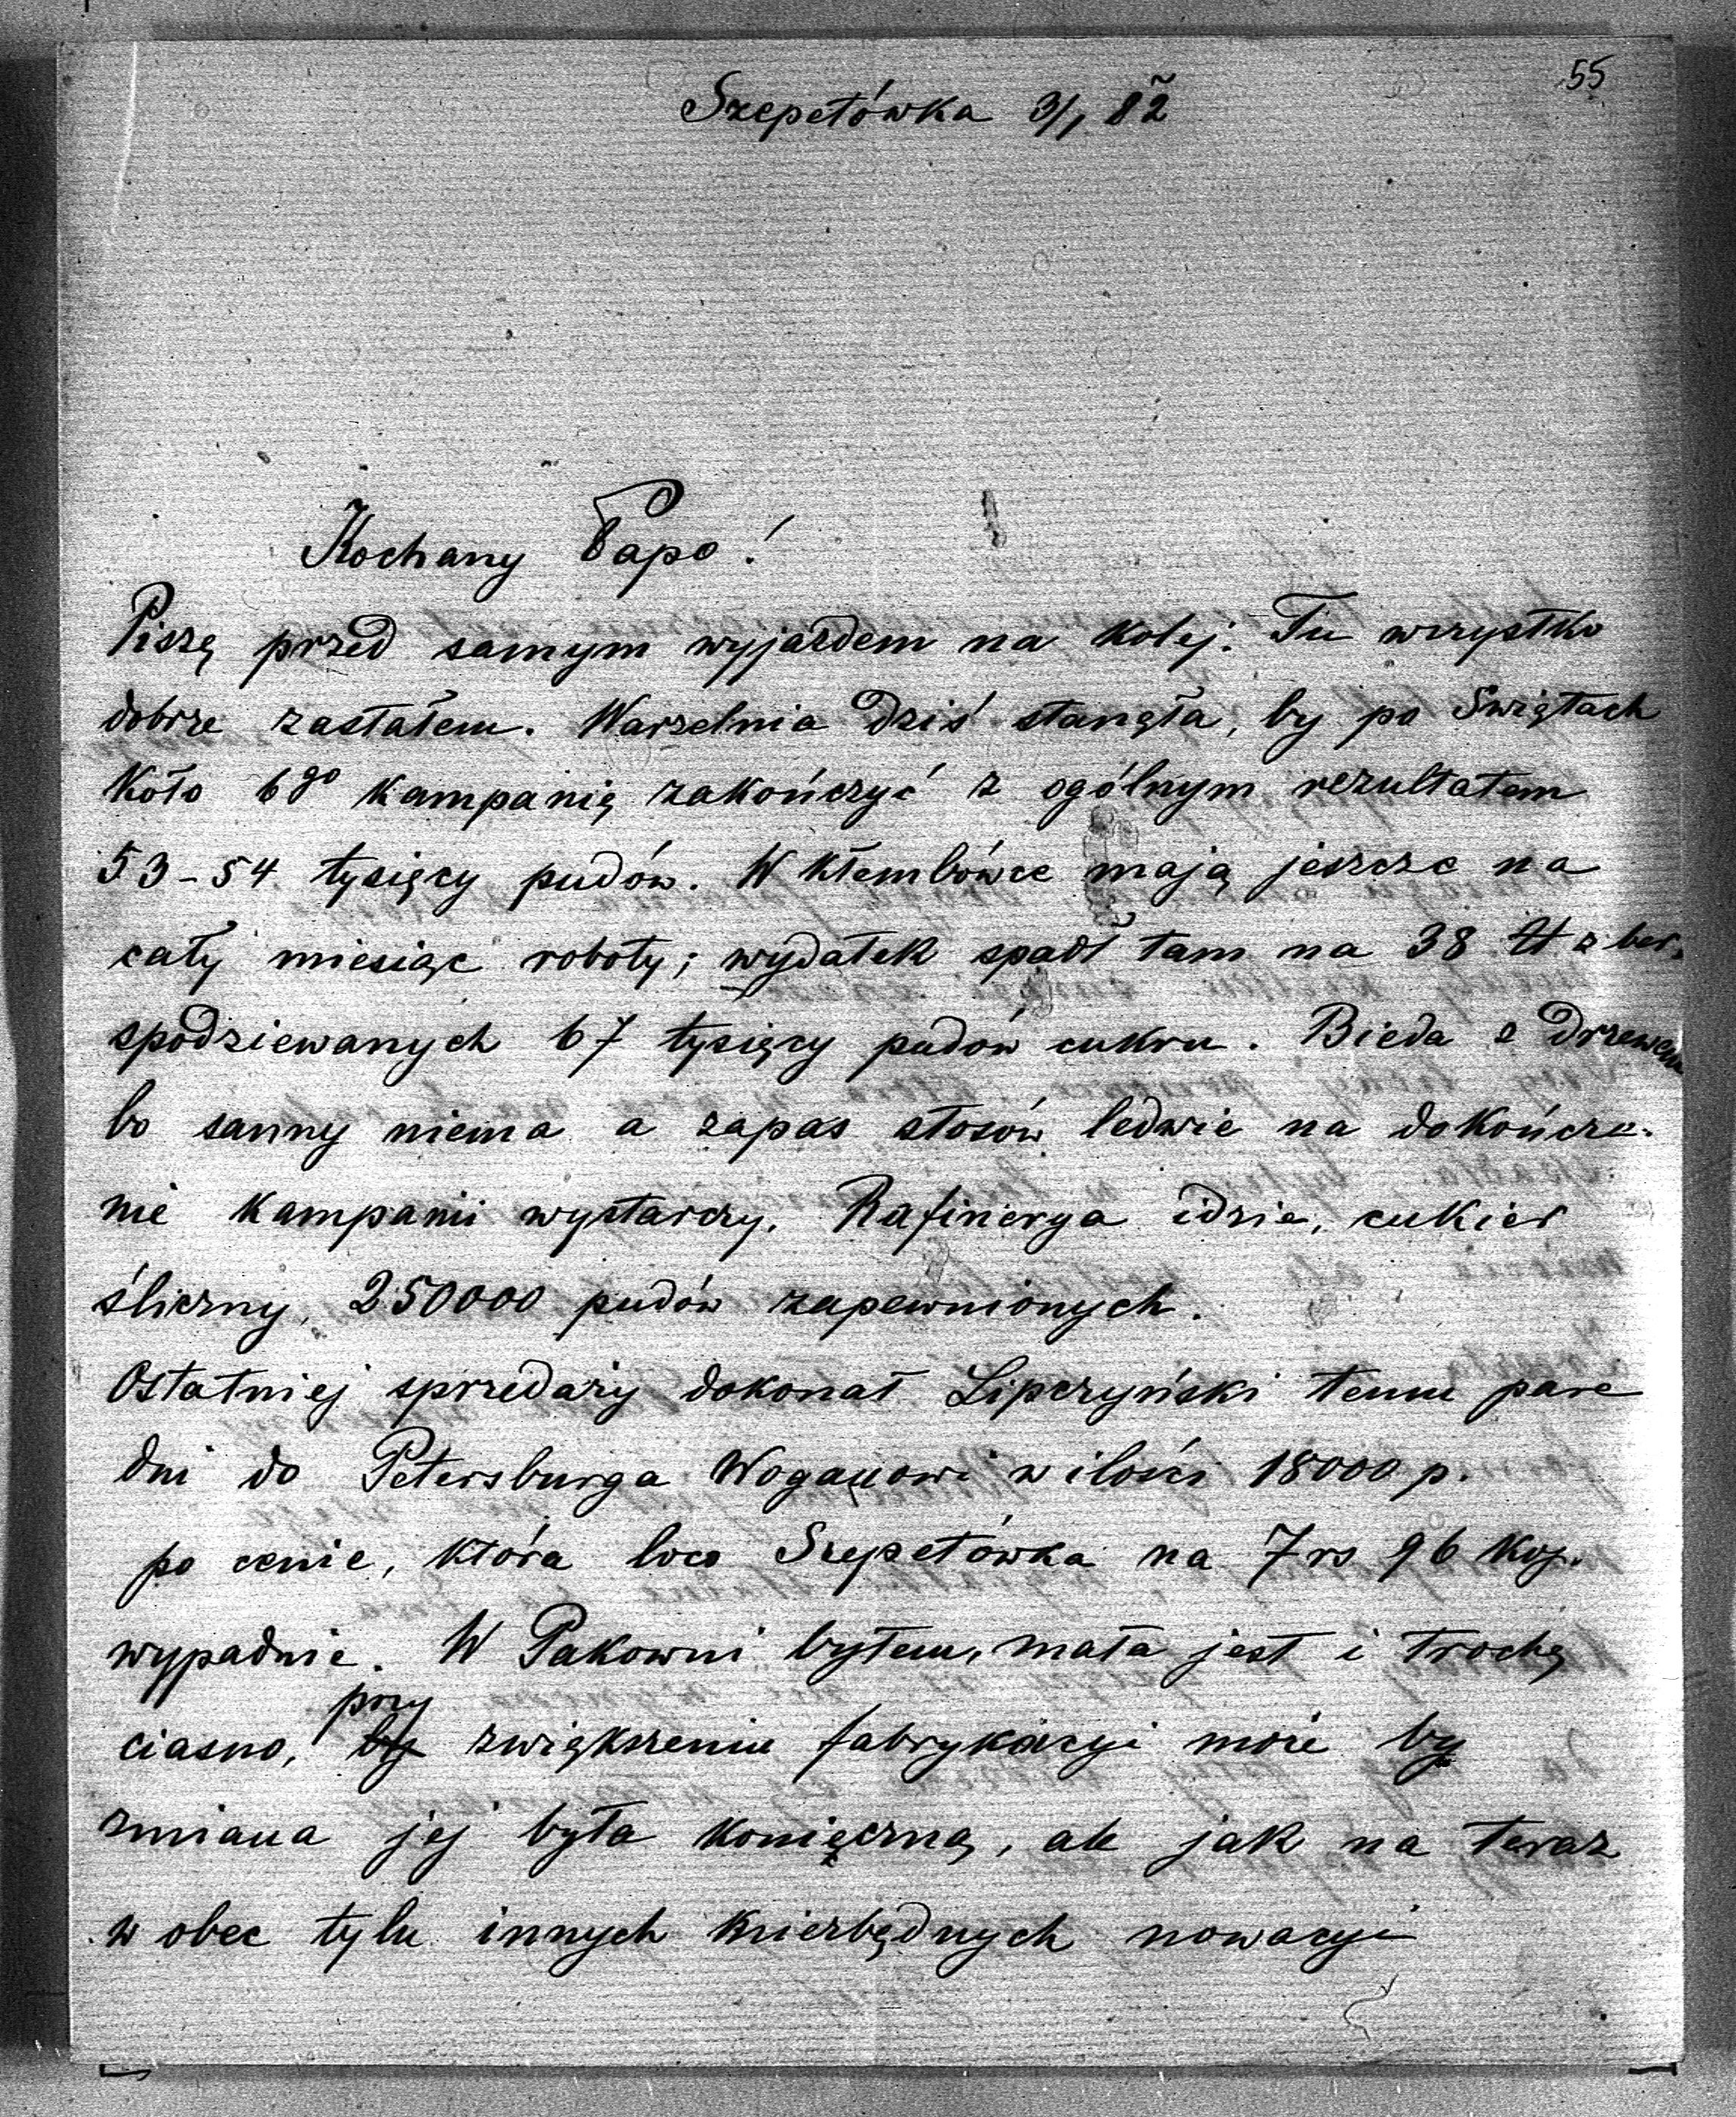 55
Szepetówka 3/1 82
Kochany Papo!
Piszę przed samym wyjazdem na kolej. Tu wszystko
dobrze zastałem. Warzelnia dziś stanęła, by po Swiętach
koło 6go kampanię zakończyć z ogólnym rezultatem
53-54 tysięcy pudów. W Kłembówce mają jeszcze na
cały miesiąc roboty; wydatek spadł tam na 38 ℔ z ber.
spodziewanych 67 tysięcy pudów cukru. Bieda z drzewem
bo sanny niema a zapas stosów ledwie na dokończe-
nie kampanii wystarczy. Rafinerya idzie, cukier
śliczny, 250000 pudów zapewnionych.
Ostatniej sprzedaży dokonał Lipczyński temu pare
dni do Petersburga Wogauowi w ilości 18000 p.
po cenie, która loco Szepetówka na 7 rs 96 kop.
wypadnie. W Pakowni byłem, mała jest i trochę
ciasno, przy zwiększeniu fabrykacyi może by
zmiana jej była konięczną, ale jak na teraz
w obec tylu innych niezbędnych nowacyi